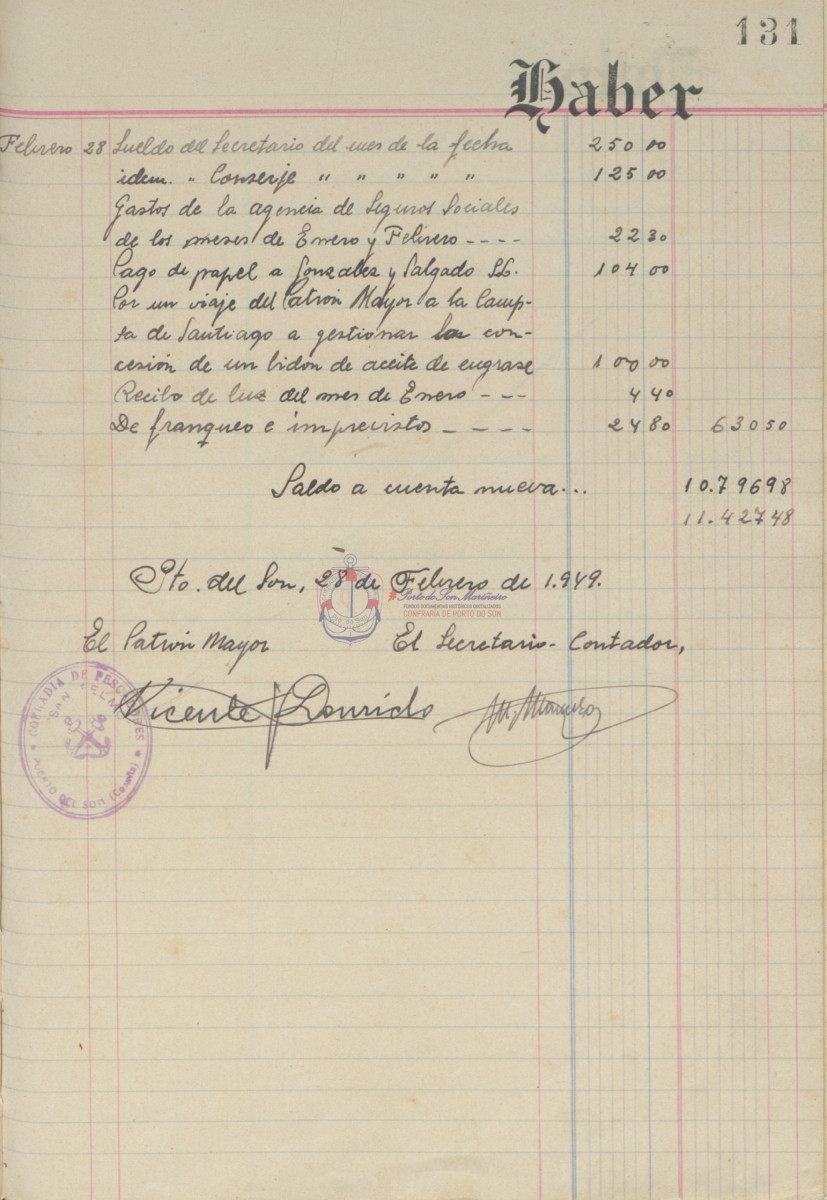 131
Haber
Febrero 28 Sueldo del Secretario del mes de la fecha 250 00
idem. " Conserje " " " " " 125 00
Gastos de la agencia de Seguros Sociales
de los meses de Enero y Febrero ---- 22 30
Pago de papel a Gonzalez y Salgado SL. 104 00
Por un viaje del Patrón Mayor a la Camp-
sa de Santiago a gestionar la con-
cesión de un bidón de aceite de engrase 100 00
Recibo de luz del mes de Enero --- 4 40
De franqueo e imprevistos ---- 24 80 630 50
Saldo a cuenta nueva... 10.796 98
11.427 48
Pto. del Son, 28 de Febrero de 1.949.
Porto do Son Mariñeiro
FONDOS DOCUMENTAIS HISTÓRICOS DIXITALIZADOS
CONFRARÍA DE PORTO DO SON
El Patrón Mayor El Secretario-Contador,
Vicente Lourido
COFRADIA DE PESCADORES
SAN TELMO
PUERTO DEL SON (Coruña)